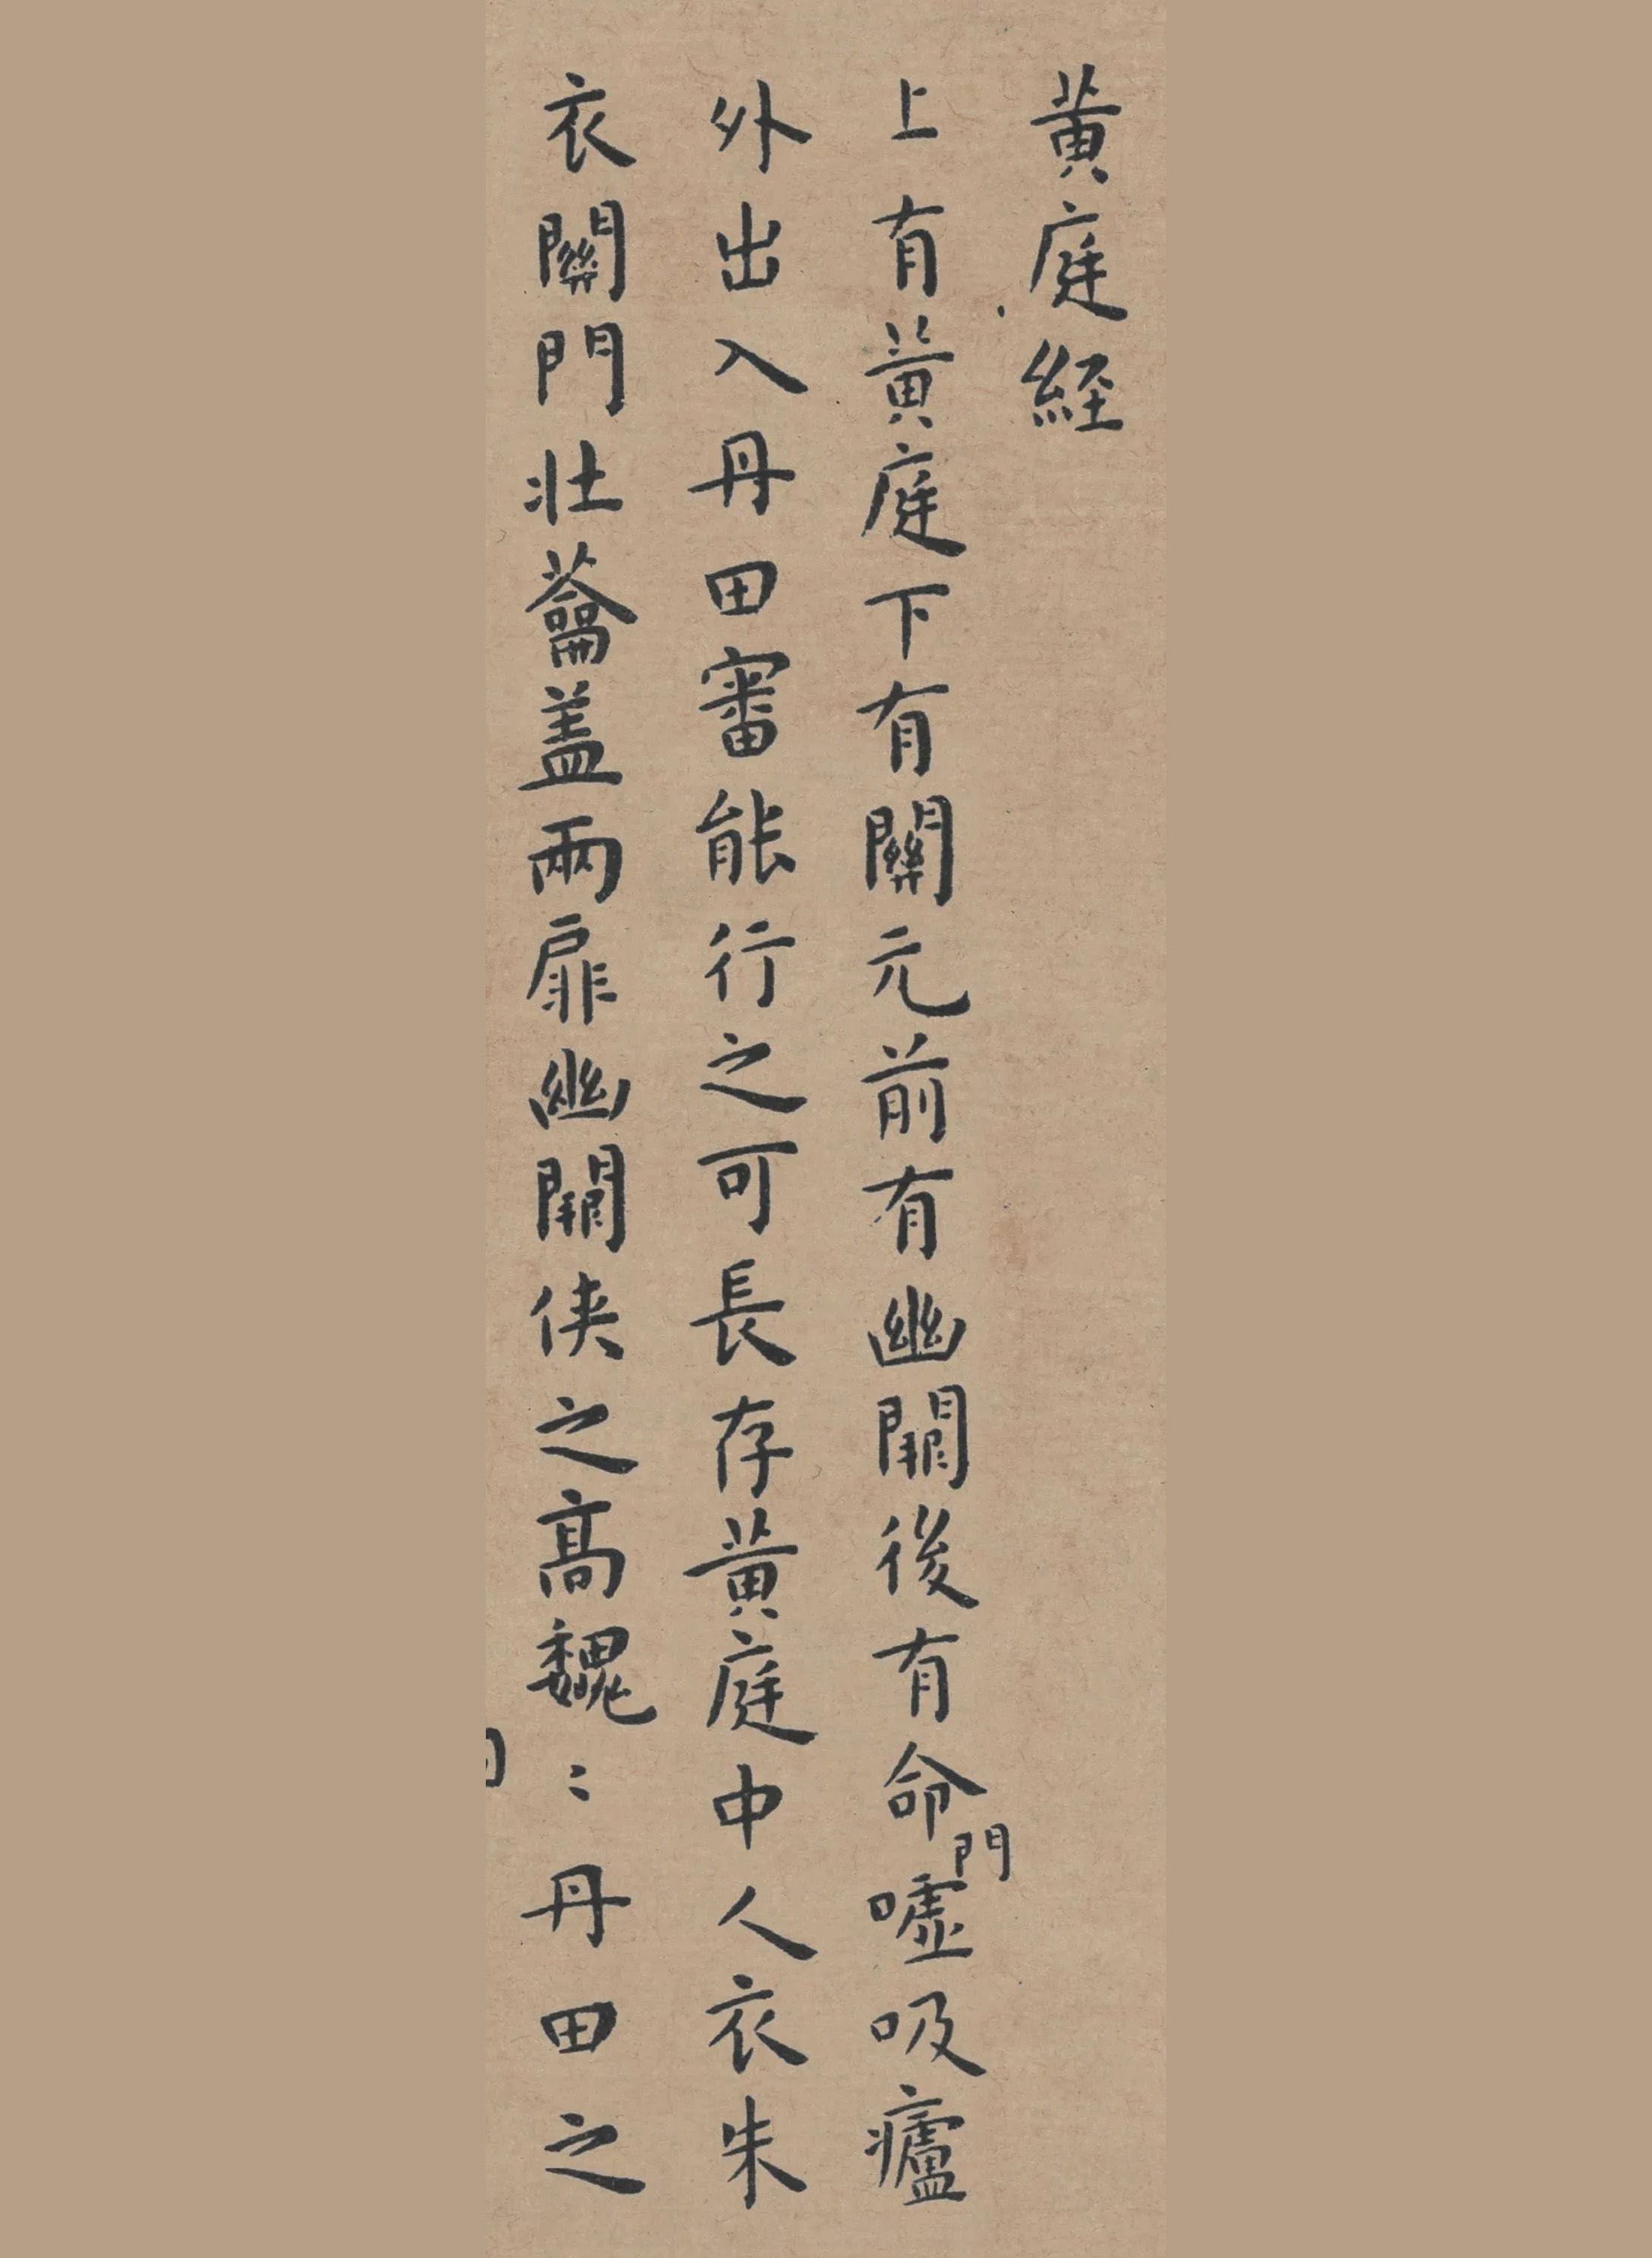 黄庭経
上有黄庭下有關元前有幽闕後有命門噓吸廬
外出入丹田審能行之可長存黄庭中人衣朱
衣關門壯蘥盖兩扉幽闕俠之高魏〻丹田之